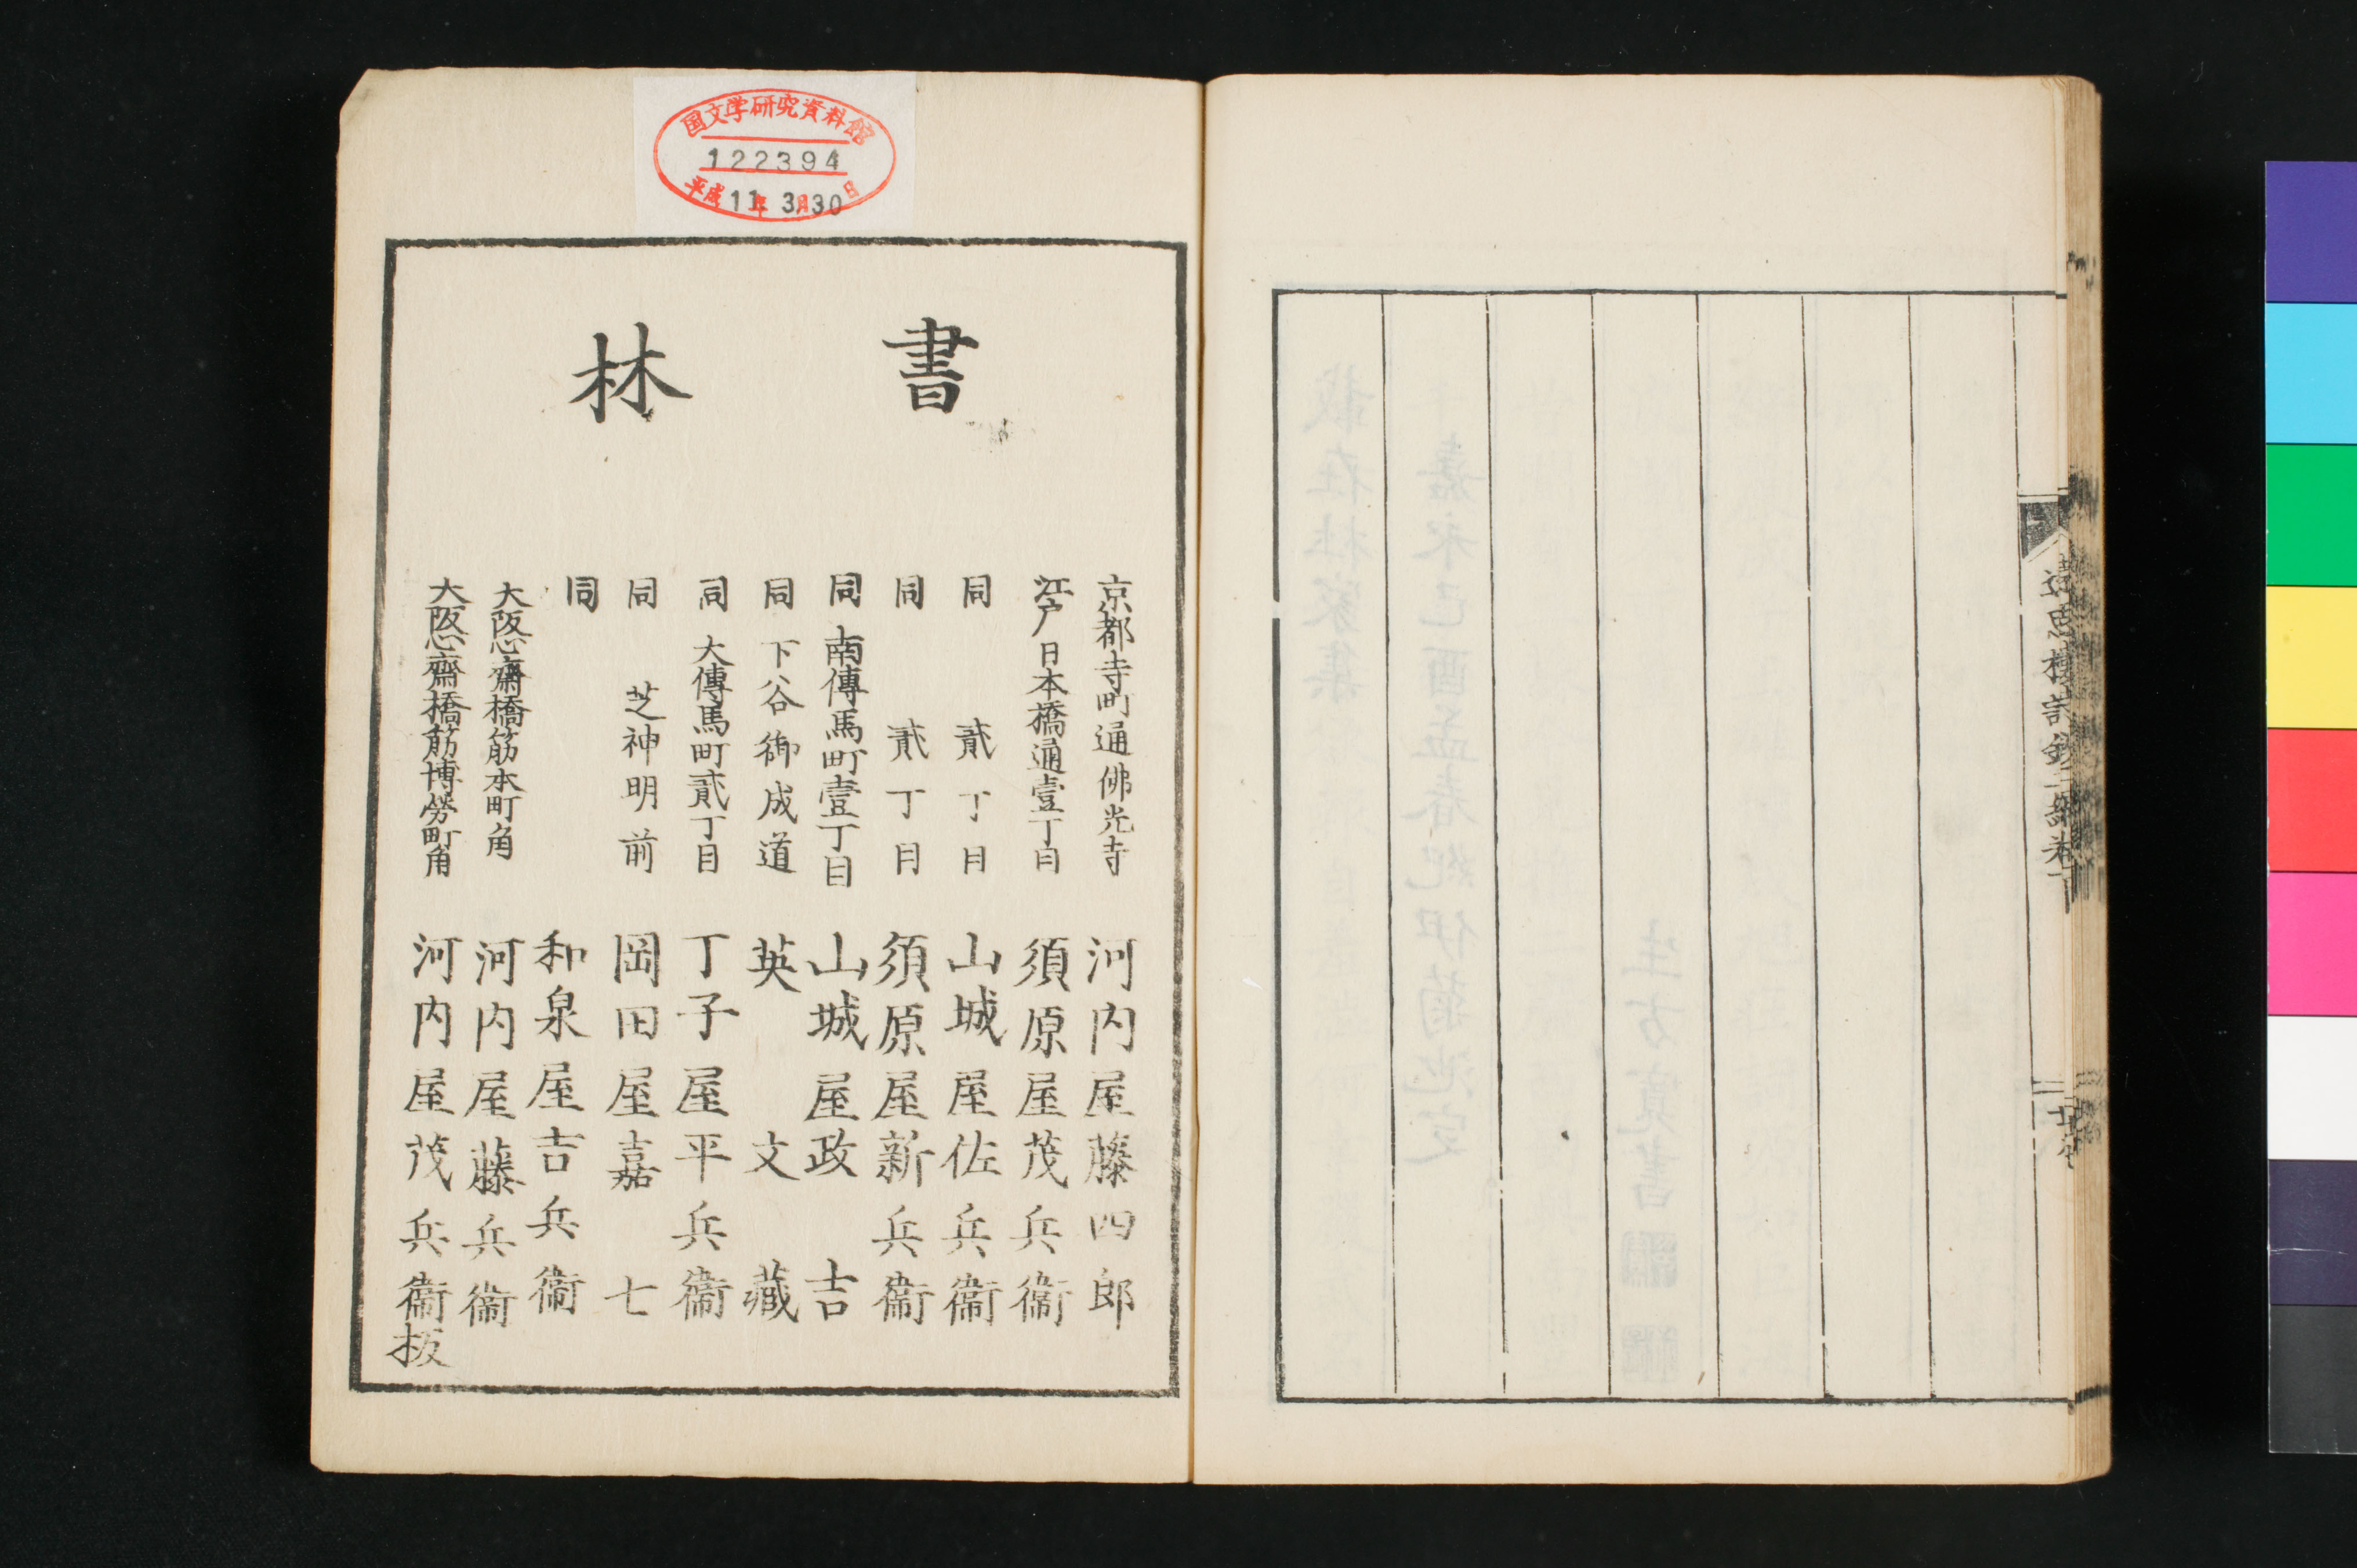 遠思樓詩鈔二編卷下
国文学研究資料館
122394
平成11年3月30日
書林
京都寺町通佛光寺 河内屋藤四郎
江戸日本橋通壹丁目 須原屋茂兵衞
同 貳丁目 山城屋佐兵衞
同 貳丁目 須原屋新兵衞
同 南傳馬町壹丁目 山城屋政吉
同 下谷御成道 英文藏
同 大傳馬町貳丁目 丁子屋平兵衞
同 芝神明前 岡田屋嘉七
同 和泉屋吉兵衞
大阪心齋橋筋本町角 河内屋藤兵衞
大阪心齋橋筋博勞町角 河内屋茂兵衞板